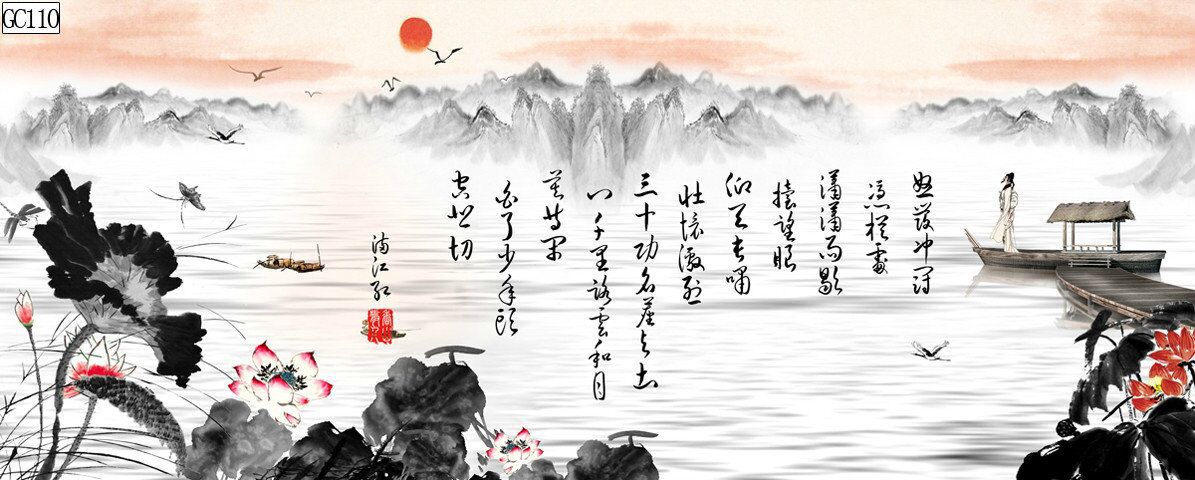 GC110
怒发冲冠
凭栏处
潇潇雨歇
抬望眼
仰天长啸
壮怀激烈
三十功名尘与土
八千里路云和月
莫等闲
白了少年头
空悲切
满江红